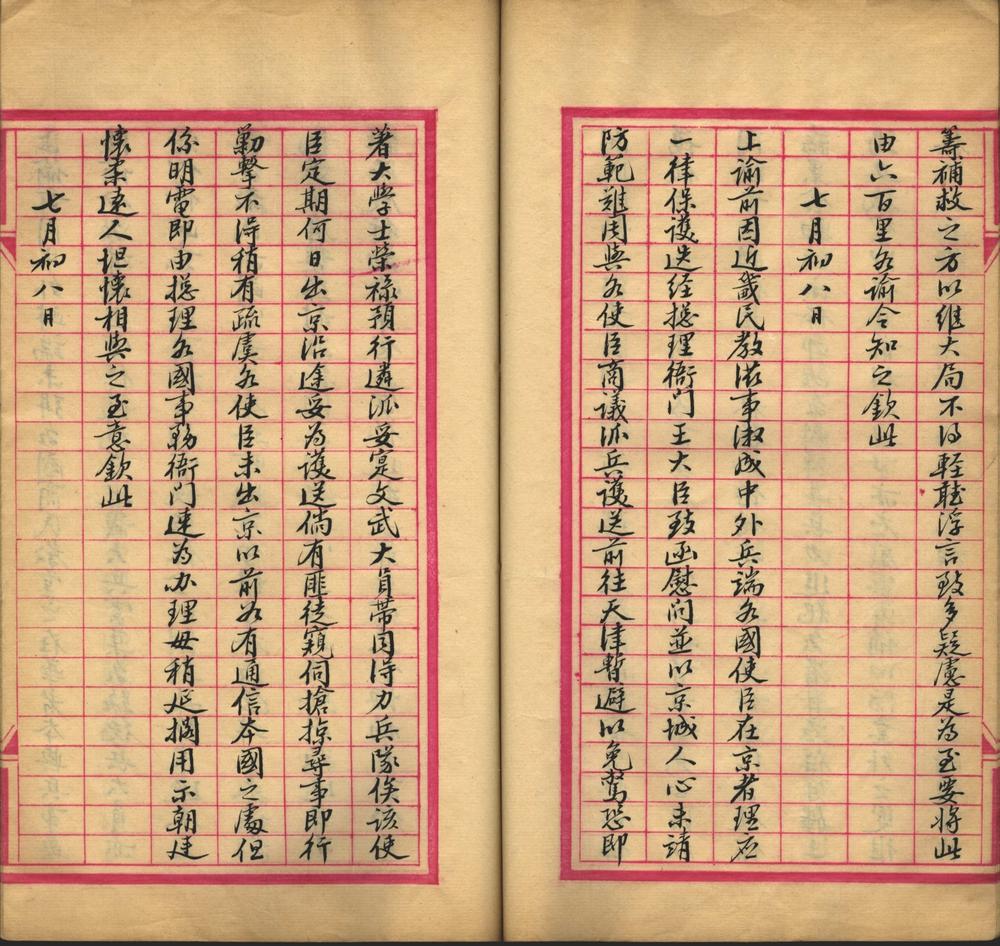 籌補救之方以維大局不得輕聽浮言致多疑慮是為至要將此
由六百里各諭令知之欽此
七月初八日
上諭前因近畿民教滋事淑成中外兵端各國使臣在京者理应
一律保護迭經總理衙門王大臣致函慰问並以京城人心未靖
防範難周與各使臣商議派兵護送前往天津暫避以免驚恐即
著大學士榮祿預行遴派妥寔文武大員帶同得力兵隊俟該使
臣定期何日出京沿途妥為護送倘有匪徒窺伺搶掠尋事即行
勦擊不得稍有疏虞各使臣未出京以前如有通信本國之處但
係明電即由總理各國事務衙門速為办理毋稍延擱用示朝廷
懷柔遠人坦懷相與之至意欽此
七月初八日